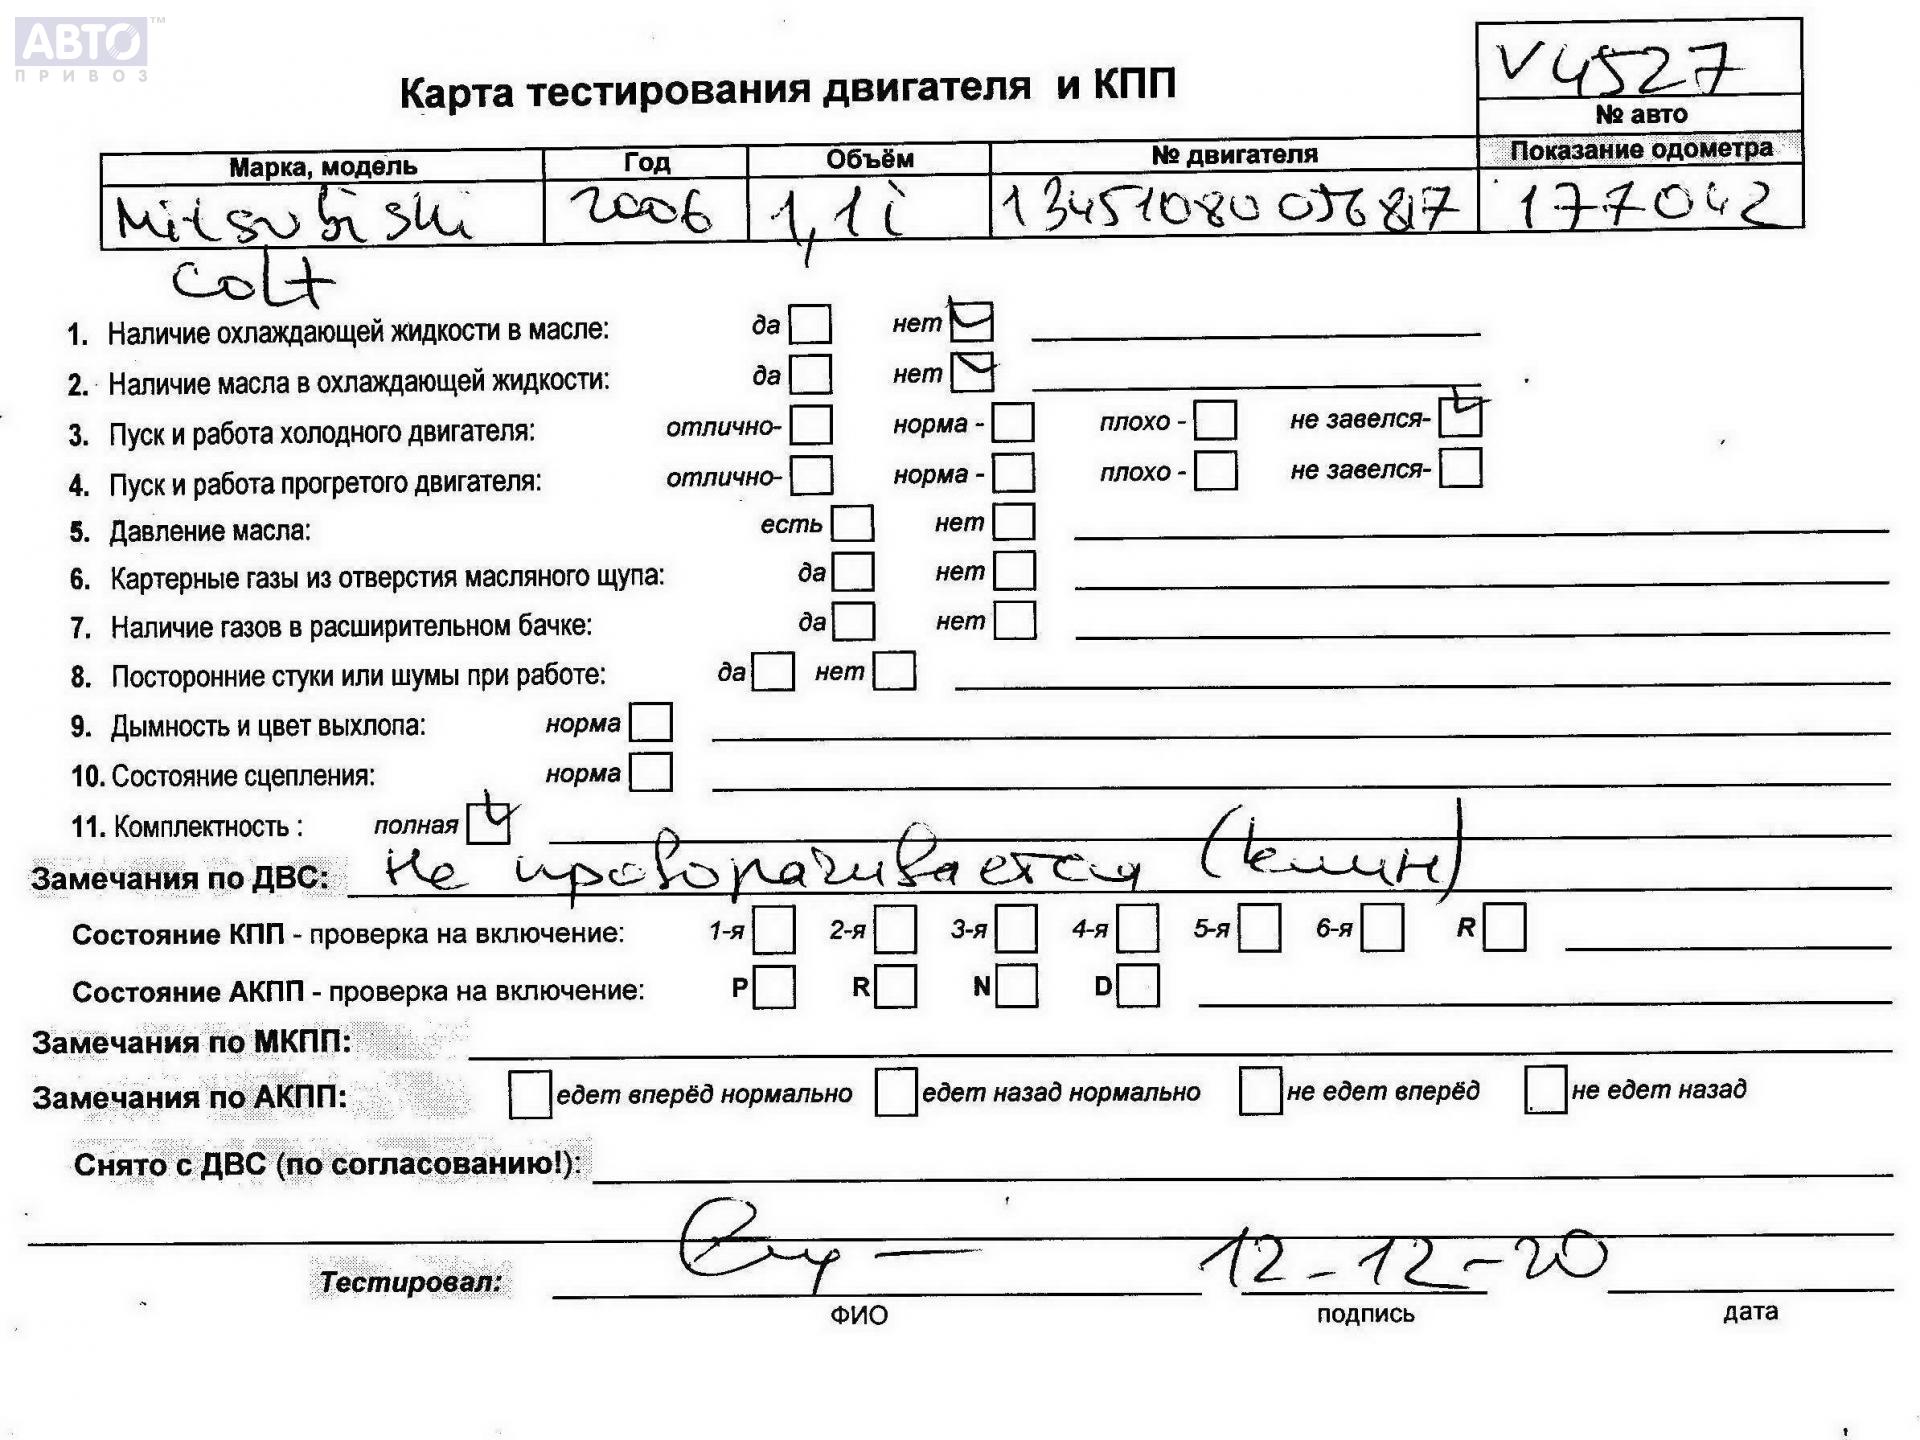 АВТО™
ПРИВОЗ
V4527
Карта тестирования двигателя и КПП
№ авто
Марка, модель Год Объём № двигателя Показание одометра
Mitsubishi 2006 1,1i 177042
Colt
1. Наличие охлаждающей жидкости в масле: да нет
2. Наличие масла в охлаждающей жидкости: да нет
3. Пуск и работа холодного двигателя: отлично- норма - плохо - не завелся-
4. Пуск и работа прогретого двигателя: отлично- норма - плохо - не завелся-
5. Давление масла: есть нет
6. Картерные газы из отверстия масляного щупа: да нет
7. Наличие газов в расширительном бачке: да нет
8. Посторонние стуки или шумы при работе: да нет
9. Дымность и цвет выхлопа: норма
10. Состояние сцепления: норма
11. Комплектность : полная
Замечания по ДВС: не проворачивается (клин)
Состояние КПП - проверка на включение: 1-я 2-я 3-я 4-я 5-я 6-я R
Состояние АКПП - проверка на включение: P R N D
Замечания по МКПП:
Замечания по АКПП: едет вперёд нормально едет назад нормально не едет вперёд не едет назад
Снято с ДВС (по согласованию!):
Тестировал: 12-12-20
ФИО подпись дата